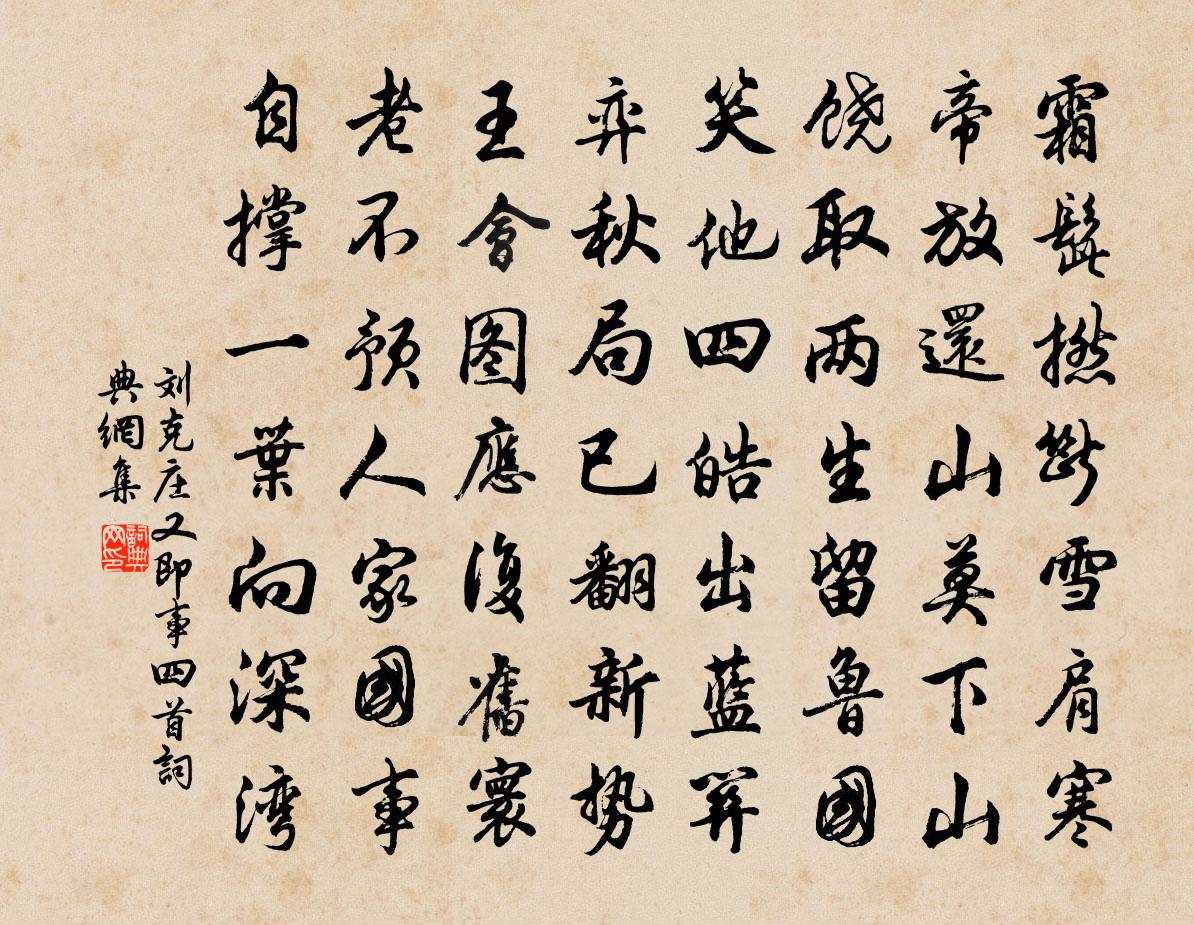 霜髭撚断雪肩寒
帝放還山莫下山
饶取两生留魯國
笑他四皓出藍關
弈秋局已翻新势
王會图應復舊寰
老不预人家國事
自撑一葉向深湾
刘克庄又即事四首詞
典網集
詞典网印